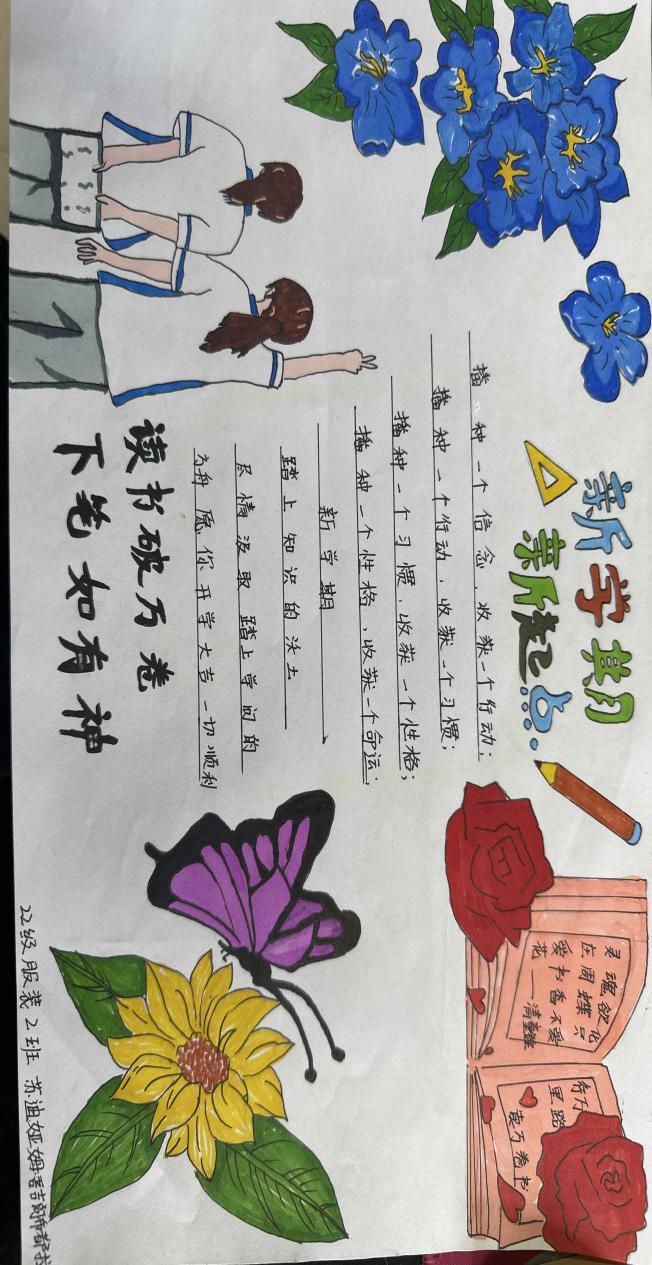 新学期
新起点
播种一个信念,收获一个行动;
播种一个行动,收获一个习惯;
播种一个习惯,收获一个性格;
播种一个性格,收获一个命运;
新学期
踏上知识的沃土
尽情汲取踏上学问的
为舟愿你开学大吉一切顺利
读书破万卷
下笔如有神
灵魂欲化
庄周蝶只
爱书香不爱
花
行万
里路
读万卷书
22级服装2班 苏迪娅姆